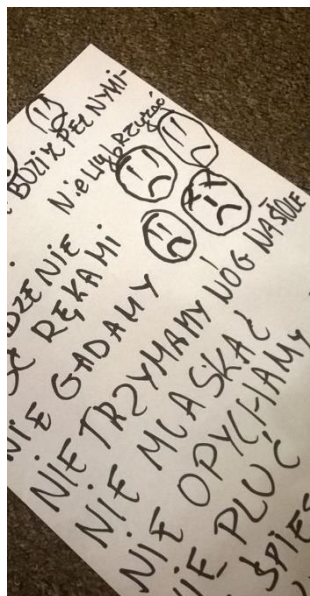 BUZIĄ PEŁNYMI-
Nie wybrzydzać
DZENIE
RĘKAMI
NIE GADAMY
NIE TRZYMAMY NÓG NA STOLE
NIE MLASKAĆ
NIE OPYCHAMY
NIE PLUĆ
ŚPIES